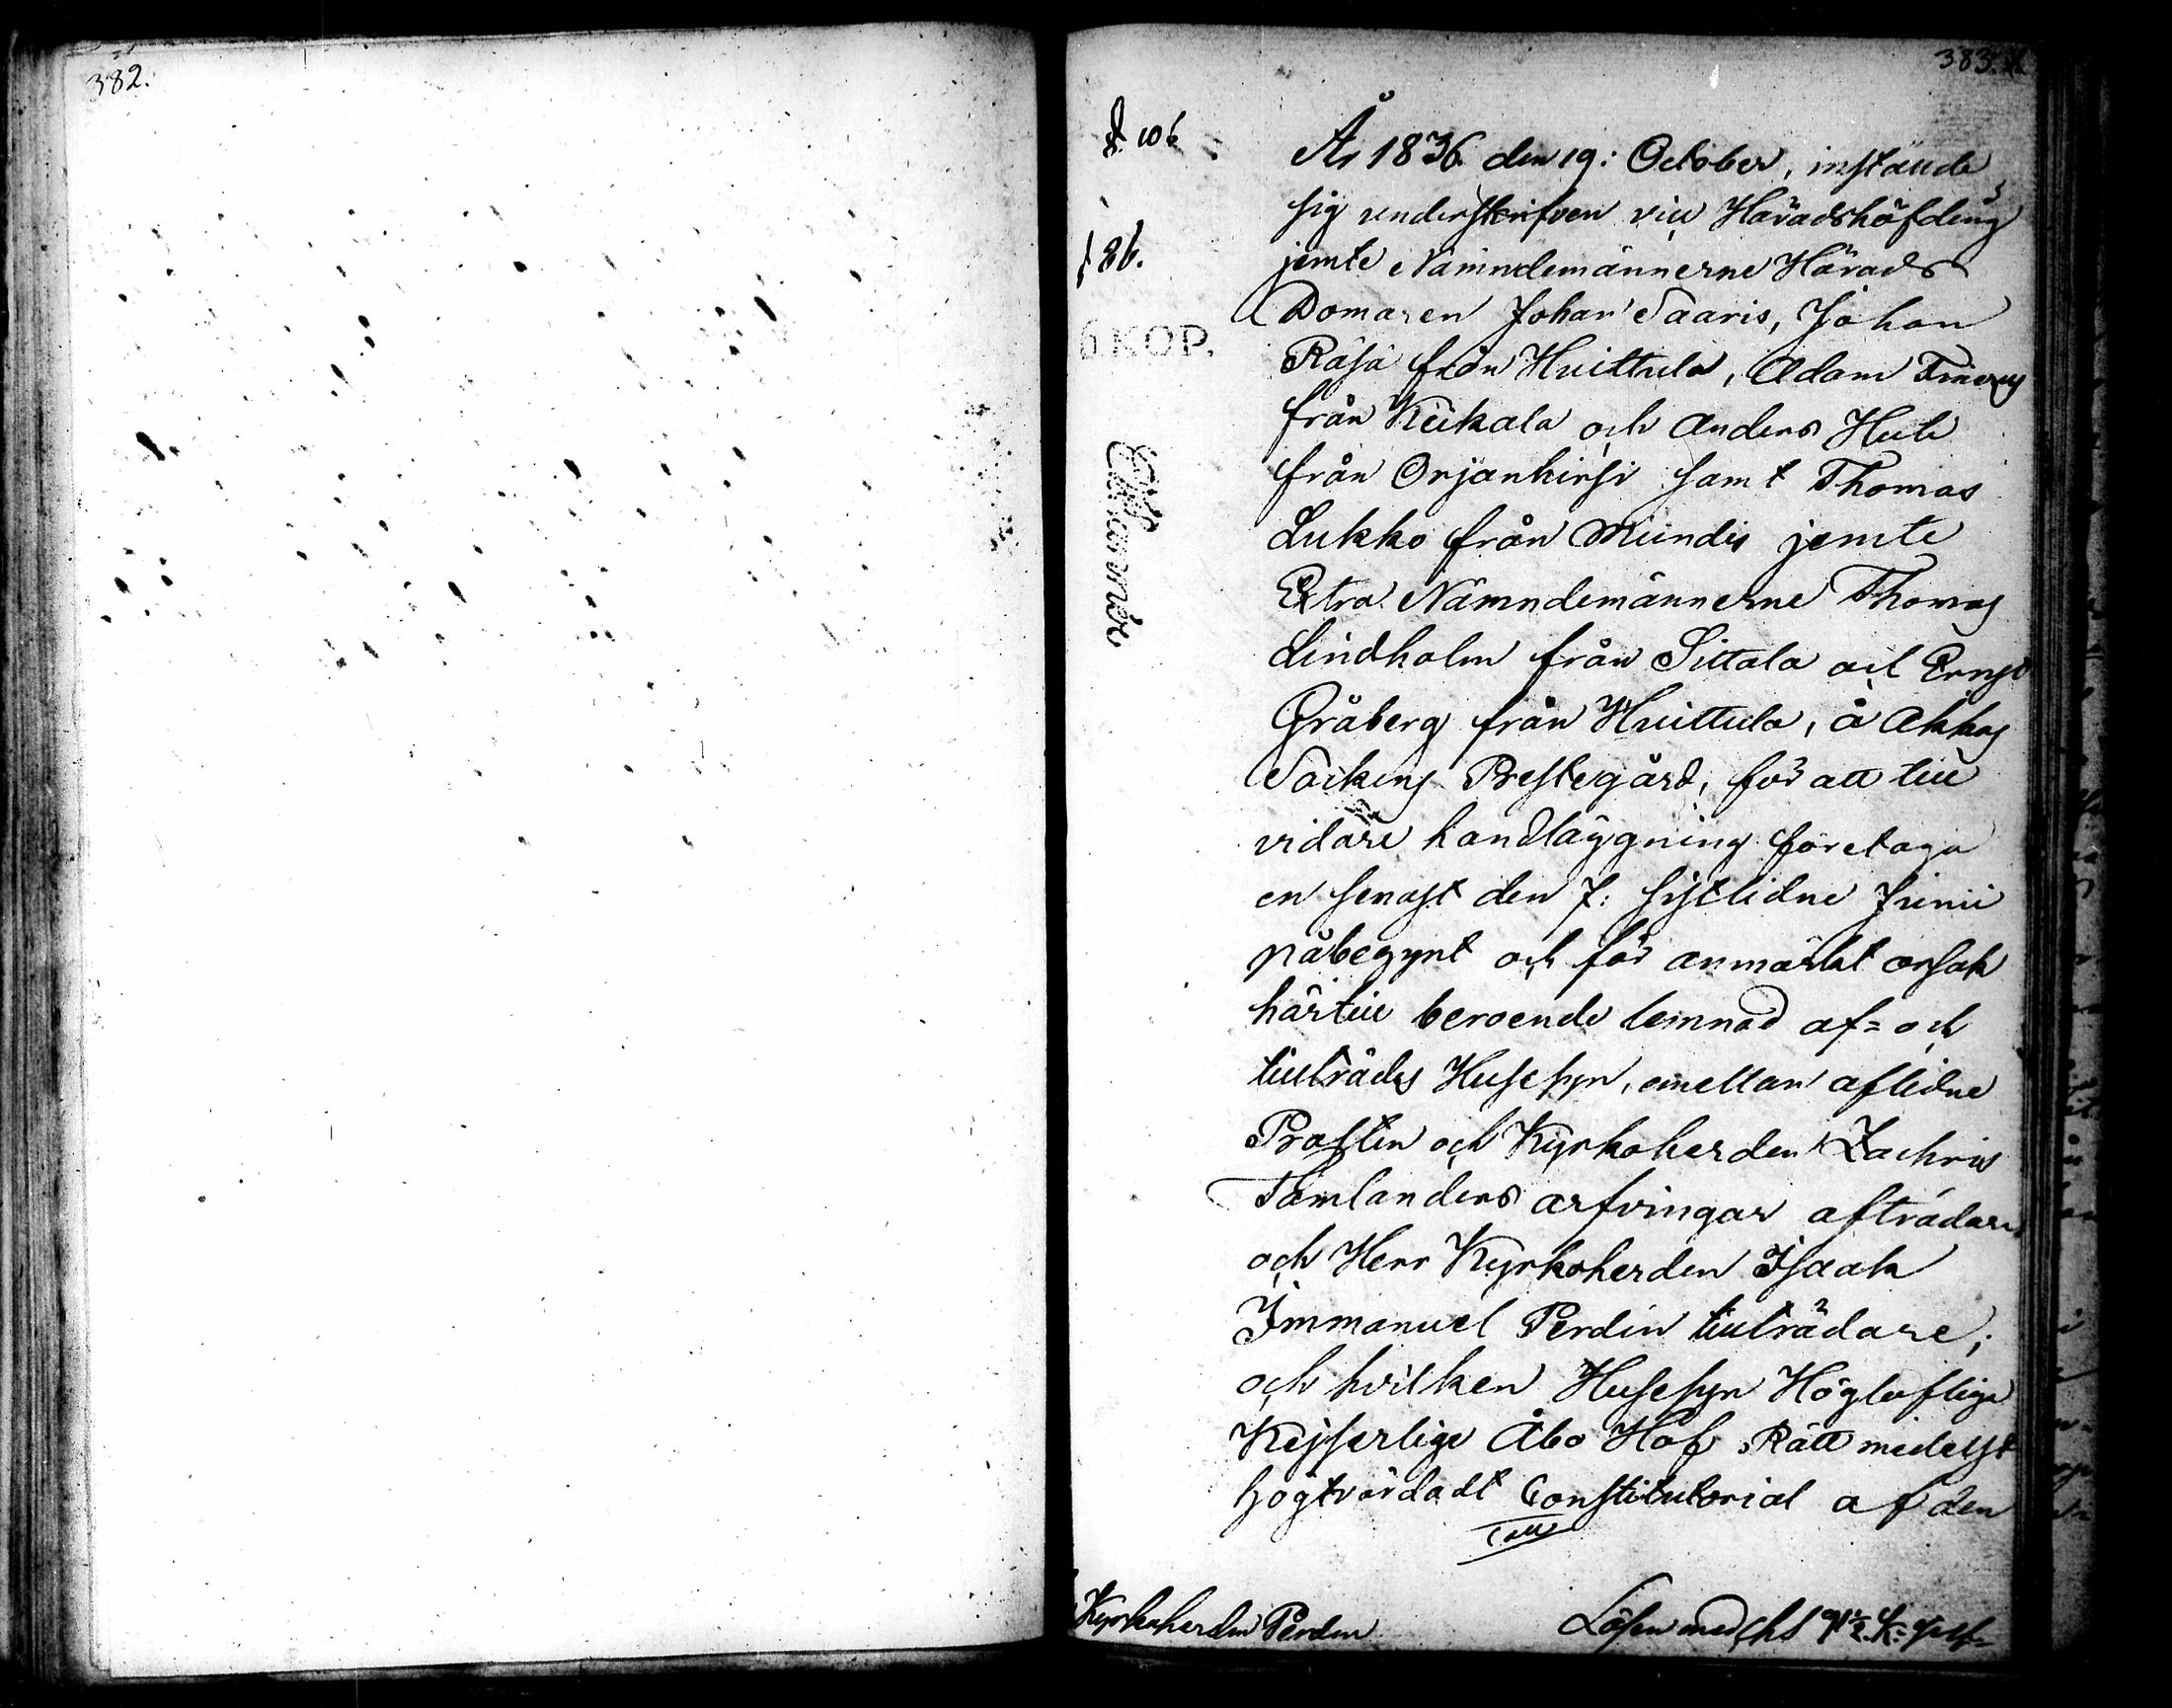 382.
383.
§. 106
§ 86.
6 KOP.
År 1836 den 19: October, instälde
sig underskrifven vice Häradshöfding
jemte Nämndemännerne Härads
Domaren Johan Saaris, Johan
Räsä från Huittula, Adam
från Keikala och Anders Heik
från Orjanhirsi samt Thomas
Lukko från Mundis jemte
Extra Nämndemännerne Thomas
Lindholm från Sittala och Ernst
Gråberg från Huittula, å Akkas
Sockens Prestegård, för att till
vidare handläggning företaga
en senast den 7: sistlidne Junii
påbegynt och för anmärkt orsak
härtill beroende lemnad af= och
tillträdes Husesyn, emellan aflidne
Prosten och Kyrkoherden Zachris
Tamlanders arfvingar afträdare
och Herr Kyrkoherden Isaak
Immanuel Perdin tillträdare;
och hvilken Husesyn Högloflige
Kejserlige Åbo Hof Rätt medelst
högtvördadt Constitutorial af den
Kyrkoherden Perden
Lösen med